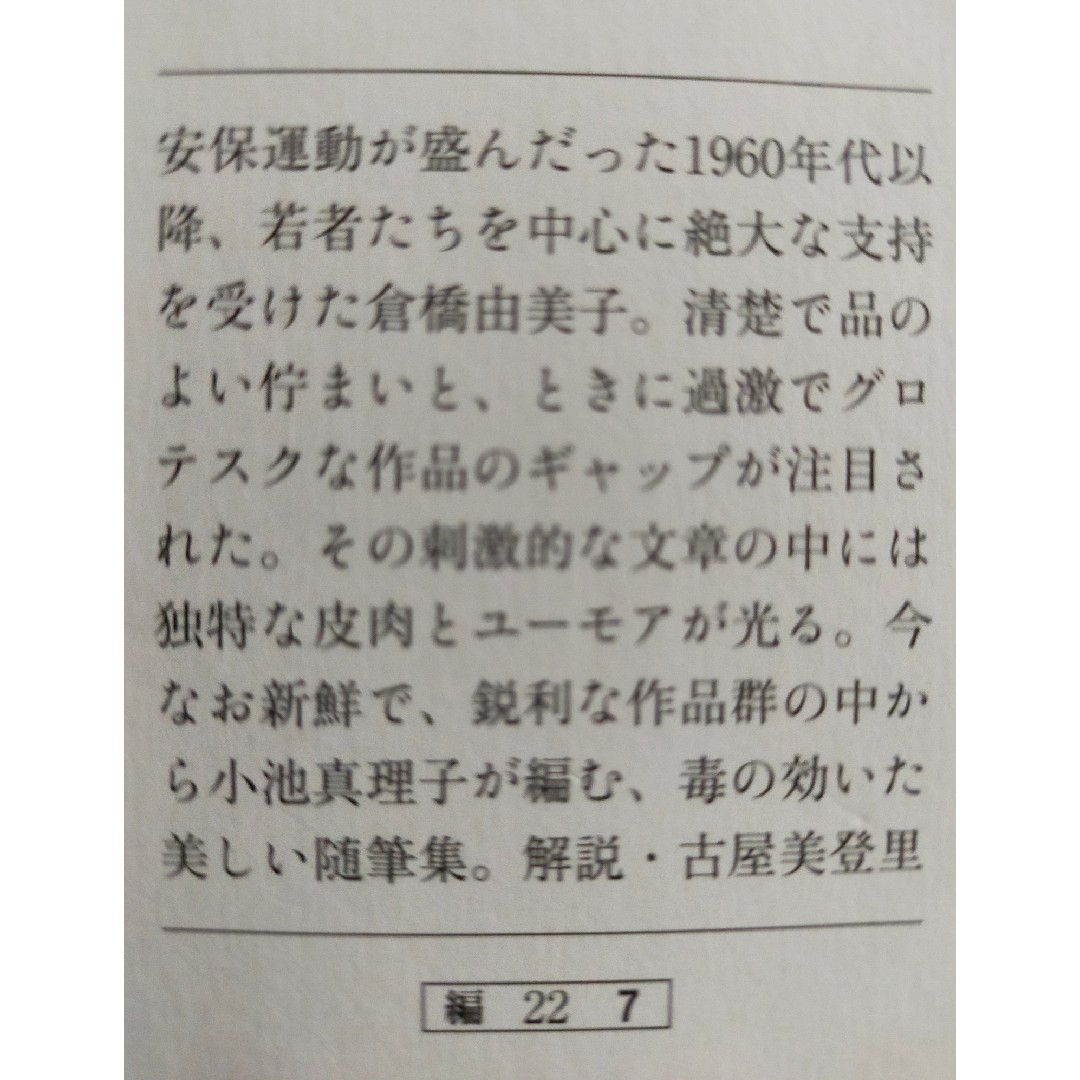 安保運動が盛んだった1960年代以
降、若者たちを中心に絶大な支持
を受けた倉橋由美子。清楚で品の
よい佇まいと、ときに過激でグロ
テスクな作品のギャップが注目さ
れた。その刺激的な文章の中には
独特な皮肉とユーモアが光る。今
なお新鮮で、鋭利な作品群の中か
ら小池真理子が編む、毒の効いた
美しい随筆集。解説・古屋美登里
編 22 7